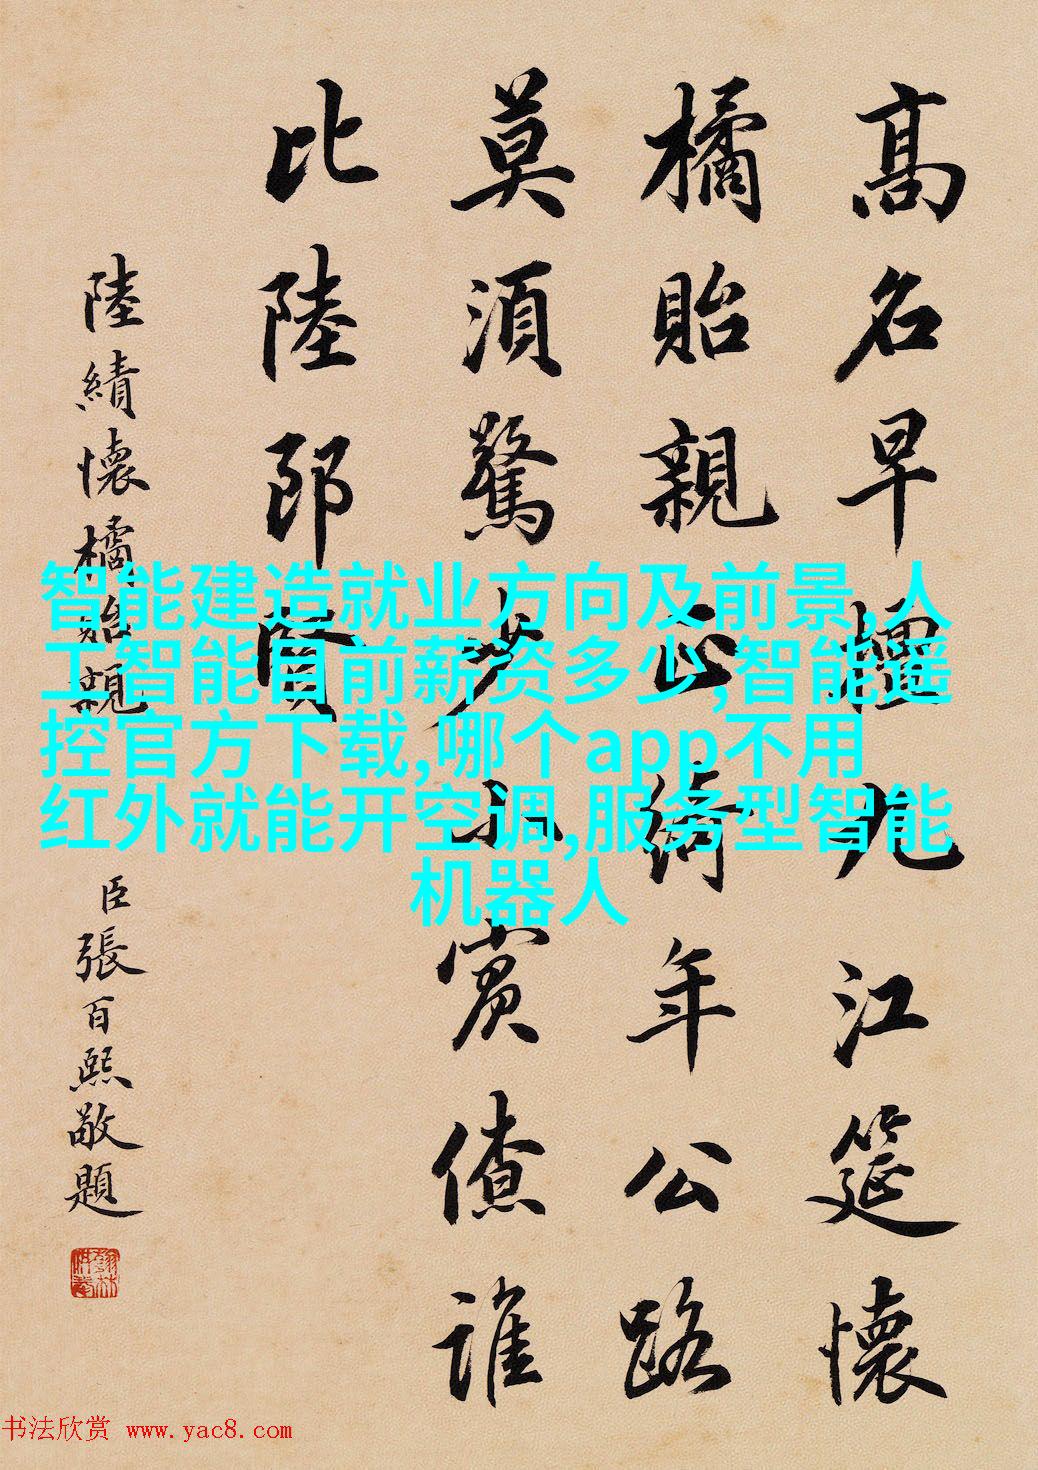 高名早擅九江筵懷
橘貽親正綺年公路
莫須驚少小賓僚誰
比陸郎賢
陸績懷橘貽親
臣張百熙敬題
智能建造就业方向及前景,人
工智能目前薪资多少,智能遥
控官方下载,哪个app不用
红外就能开空调,服务型智能
机器人
书法欣赏 www.yac8.com